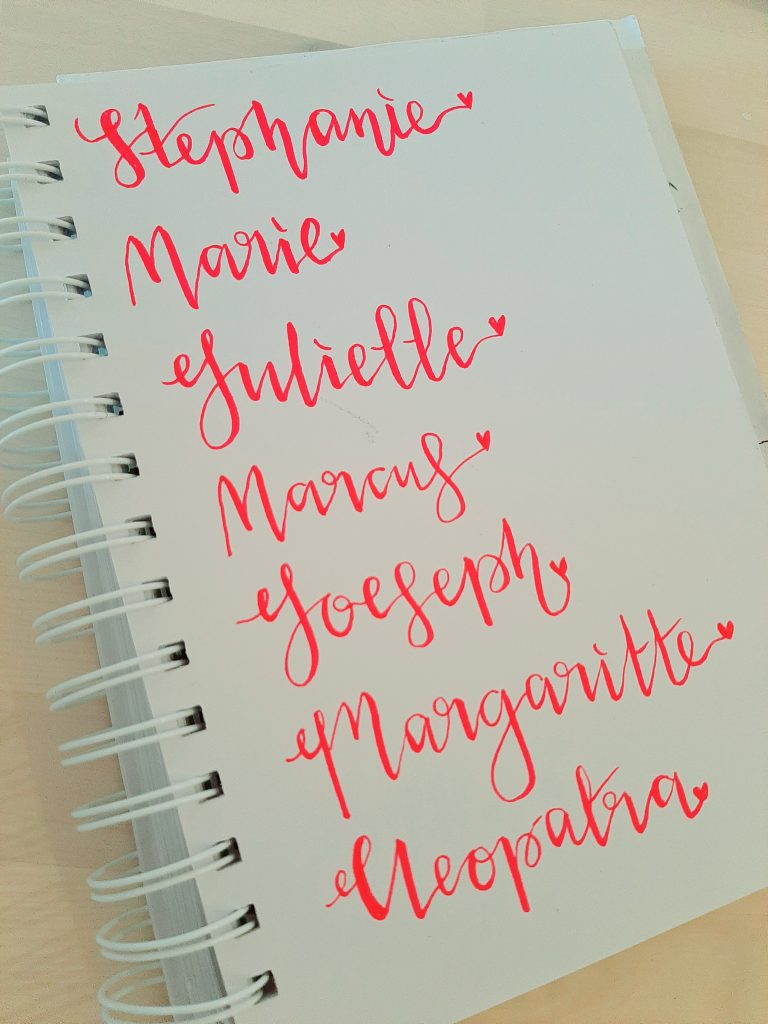 Stephanie
Marie
Julielle
Marcus
Joeseph
Margaritte
Cleopatra